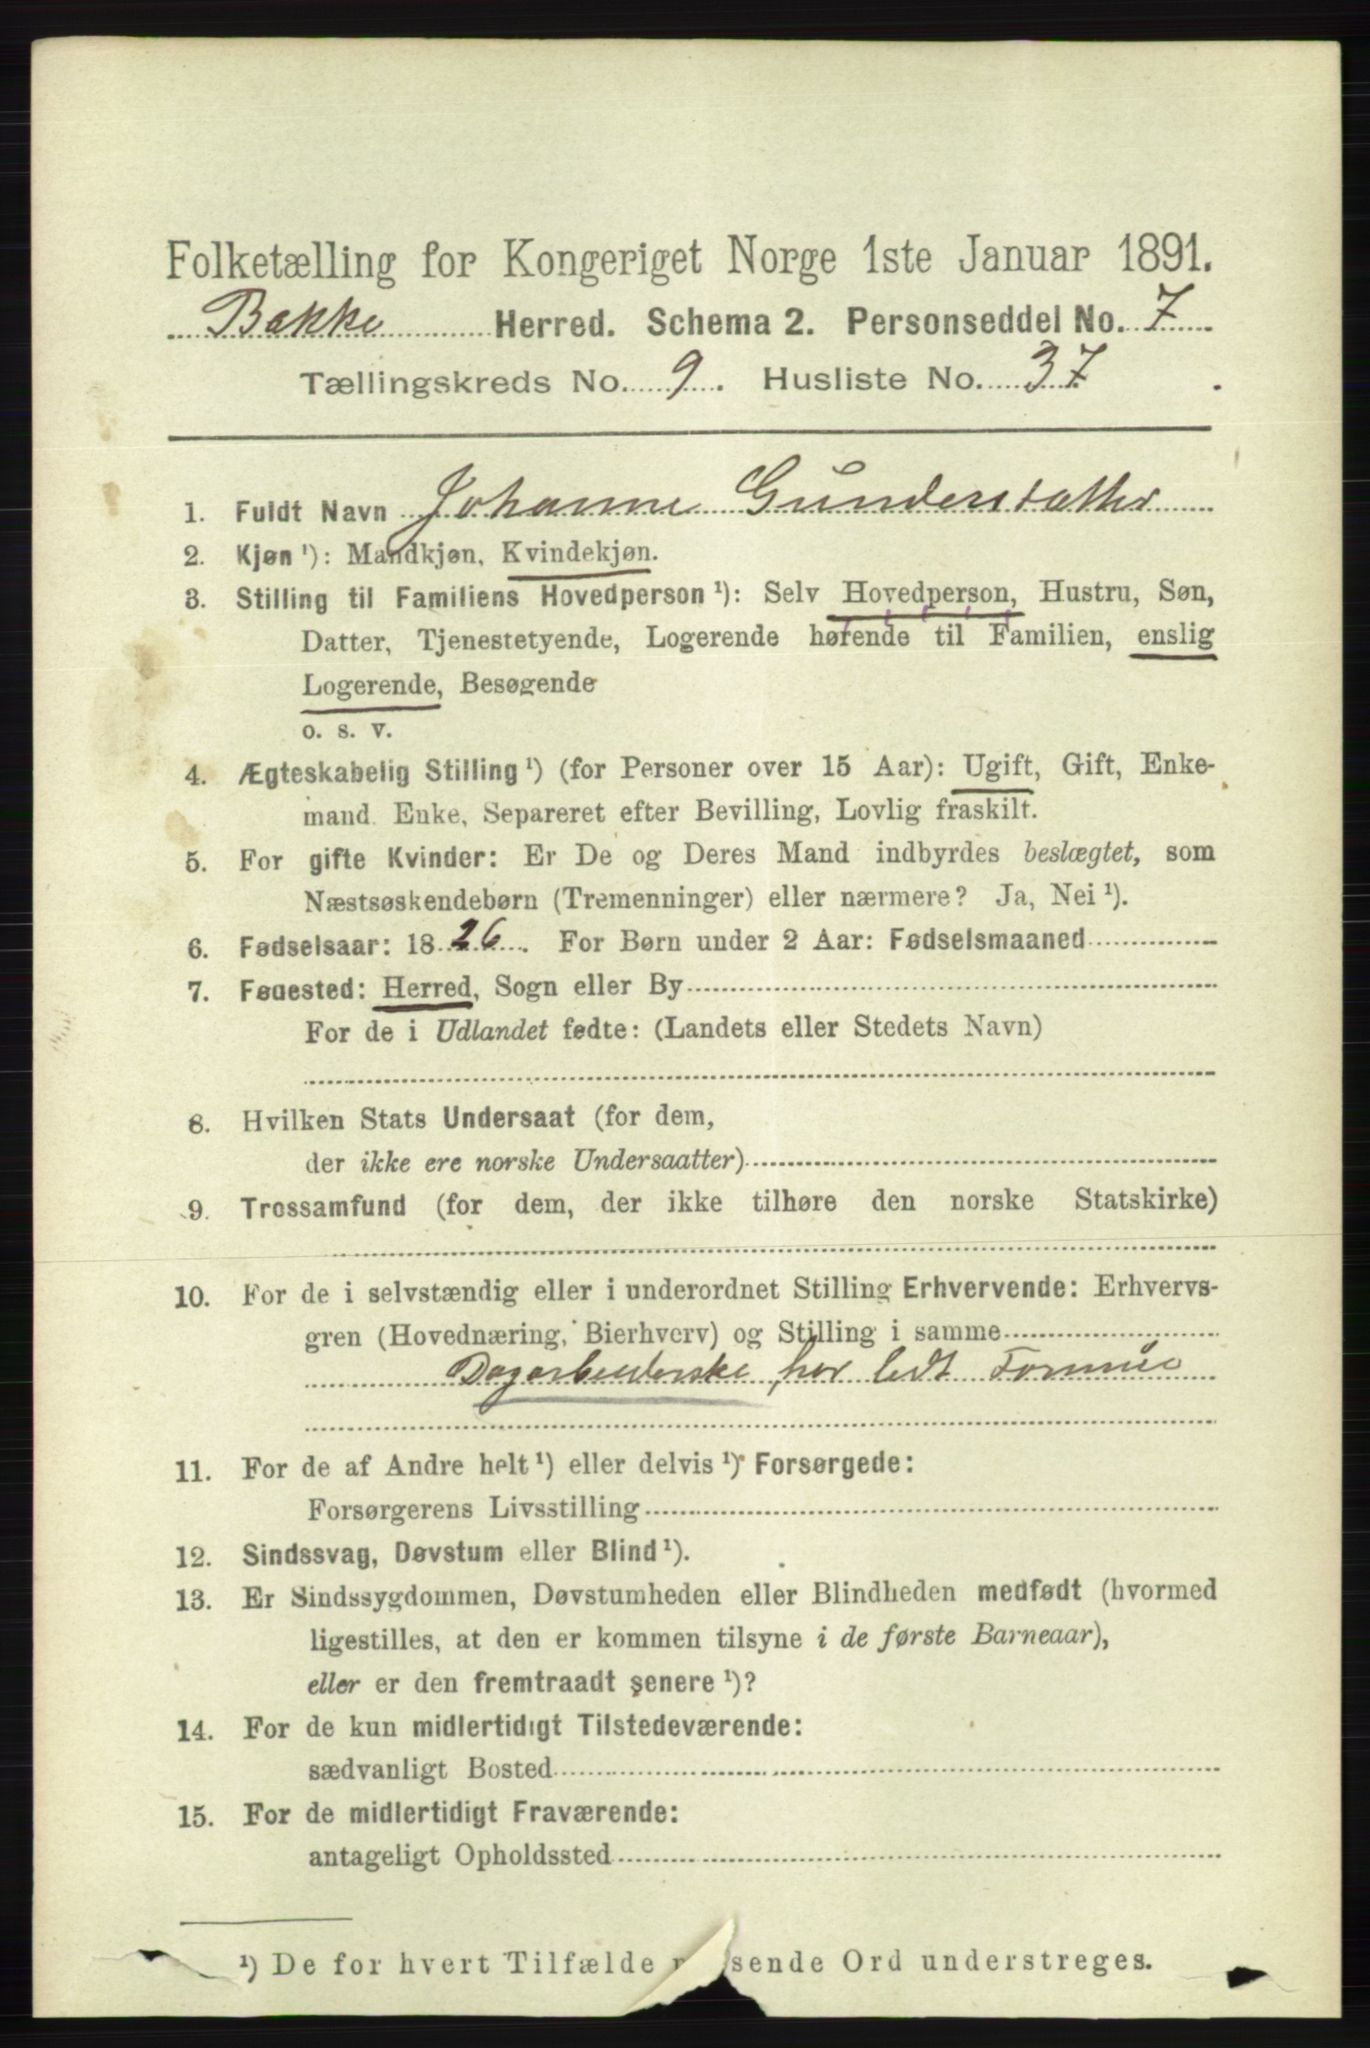 Folketælling for Kongeriget Norge 1ste Januar 1891.
Bakke Herred. Schema 2. Personseddel No. 7
Tællingskreds No. 9. Husliste No. 37.
1. Fuldt Navn Johanne Gundersdatter
2. Kjøn ¹): Mandkjøn, Kvindekjøn.
3. Stilling til Familiens Hovedperson ¹): Selv Hovedperson, Hustru, Søn,
Datter, Tjenestetyende, Logerende hørende til Familien, enslig
Logerende, Besøgende
o. s. v.
4. Ægteskabelig Stilling ¹) (for Personer over 15 Aar): Ugift, Gift, Enke-
mand. Enke, Separeret efter Bevilling, Lovlig fraskilt.
5. For gifte Kvinder: Er De og Deres Mand indbyrdes beslægtet, som
Næstsøskendebørn (Tremenninger) eller nærmere? Ja, Nei ¹).
6. Fødselsaar: 1826. For Børn under 2 Aar: Fødselsmaaned
7. Fødested: Herred, Sogn eller By
For de i Udlandet fødte: (Landets eller Stedets Navn)
8. Hvilken Stats Undersaat (for dem,
der ikke ere norske Undersaatter)
9. Trossamfund (for dem, der ikke tilhøre den norske Statskirke)
10. For de i selvstændig eller i underordnet Stilling Erhvervende: Erhvervs-
gren (Hovednæring, Bierhverv) og Stilling i samme
Dagarbeiderske, har lidt Formue
11. For de af Andre helt ¹) eller delvis ¹) Forsørgede:
Forsørgerens Livsstilling
12. Sindssvag, Døvstum eller Blind ¹).
13. Er Sindssygdommen, Døvstumheden eller Blindheden medfødt (hvormed
ligestilles, at den er kommen tilsyne i de første Barneaar),
eller er den fremtraadt senere ¹)?
14. For de kun midlertidigt Tilstedeværende:
sædvanligt Bosted
15. For de midlertidigt Fraværende:
antageligt Opholdssted
¹) De for hvert Tilfælde p sende Ord understreges.